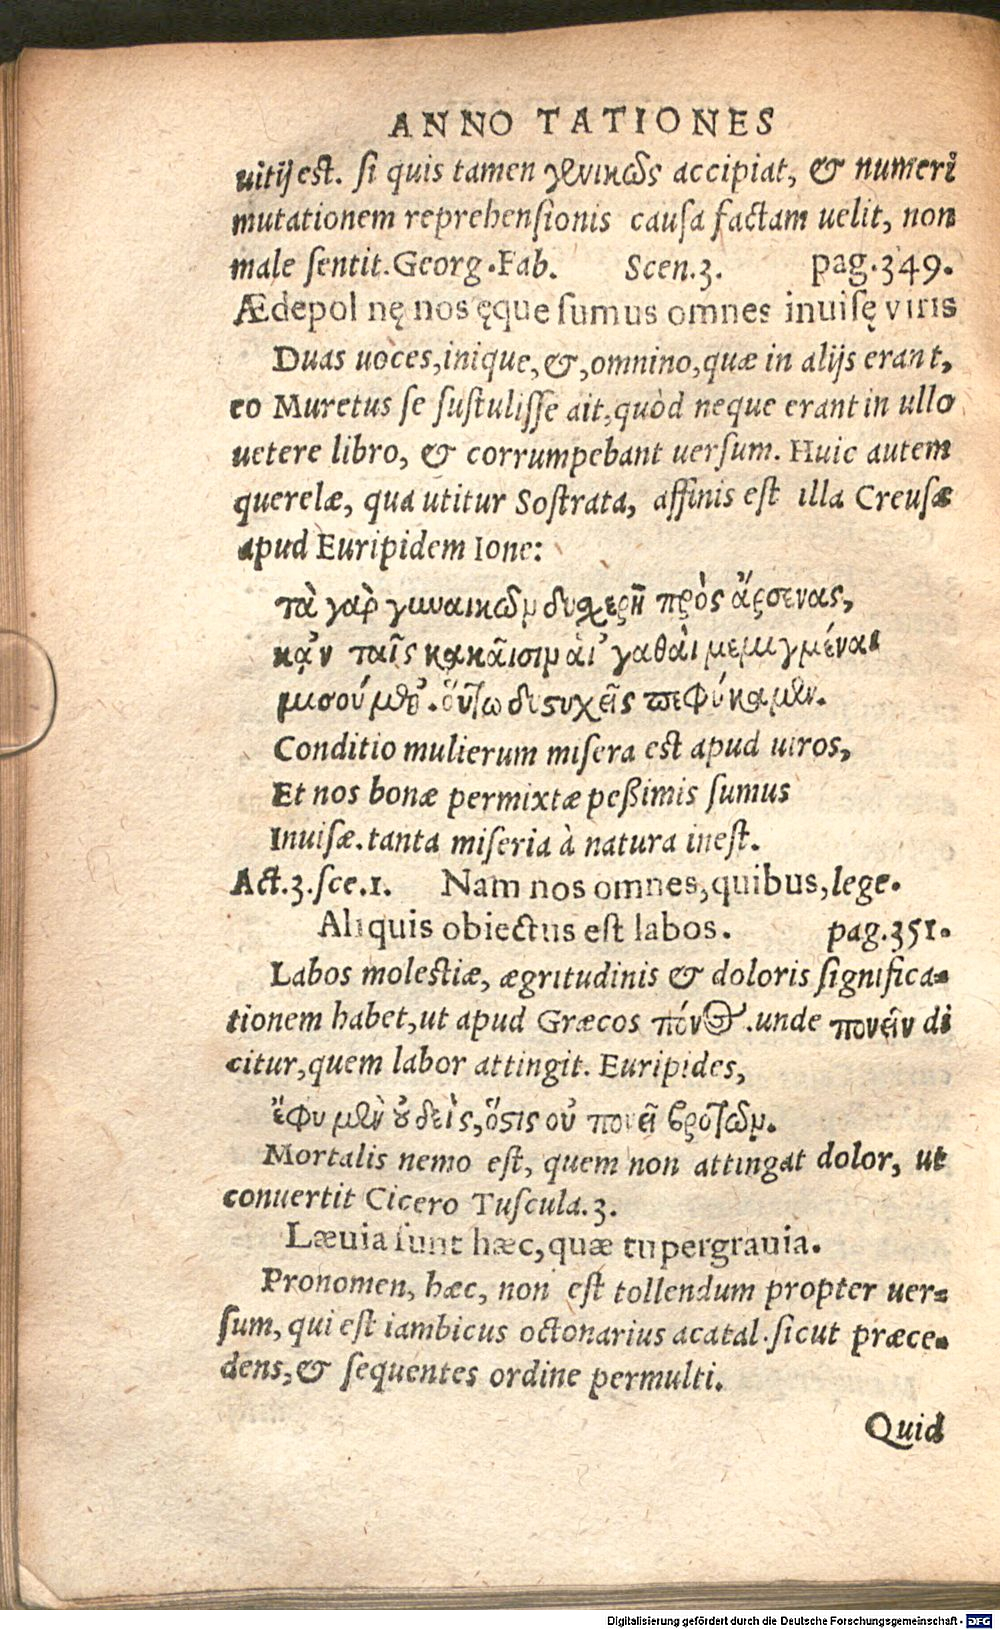 ANNOTATIONES
uitij est. ſi quis tamen γενικῶς accipiat, & numeri
mutationem reprehenſionis cauſa factam uelit, non
male ſentit. Georg. Fab. Scen. 3. pag. 349.
Ædepol nę nos ęque ſumus omnes inuiſę viris
Duas uoces, inique, &, omnino, quæ in alijs erant,
eo Muretus ſe ſuſtuliſſe ait, quòd neque erant in ullo
uetere libro, & corrumpebant uerſum. Huic autem
querelæ, qua utitur Soſtrata, affinis eſt illa Creuſæ
apud Euripidem Ione:
τὰ γὰρ γυναικῶν δυχερῆ πρὸς ἄρσενας,
κᾀν ταῖς κακαῖσιν ἁι᾽ γαθὰι μεμιγμέναι
μισούμεθ᾽. ὅυτω δυστυχεῖς πεφύκαμεν.
Conditio mulierum miſera eſt apud uiros,
Et nos bonæ permixtæ peßimis ſumus
Inuiſæ. tanta miſeria à natura ineſt.
Act. 3. ſce. 1. Nam nos omnes, quibus, lege.
Aliquis obiectus eſt labos. pag. 351.
Labos moleſtiæ, ægritudinis & doloris ſignifica-
tionem habet, ut apud Græcos πόνος. unde πονεῖν di
citur, quem labor attingit. Euripides,
ἔφυ μὲν ȣ̓δεὶς, ὅστις οὐ πονεῖ βροτῶν.
Mortalis nemo eſt, quem non attingat dolor, ut
conuertit Cicero Tuſcula. 3.
Læuia ſunt hæc, quæ tu pergrauia.
Pronomen, hæc, non eſt tollendum propter uer-
ſum, qui eſt iambicus octonarius acatal. ſicut præce-
dens, & ſequentes ordine permulti.
Quid
Digitalisierung gefördert durch die Deutsche Forschungsgemeinschaft - DFG